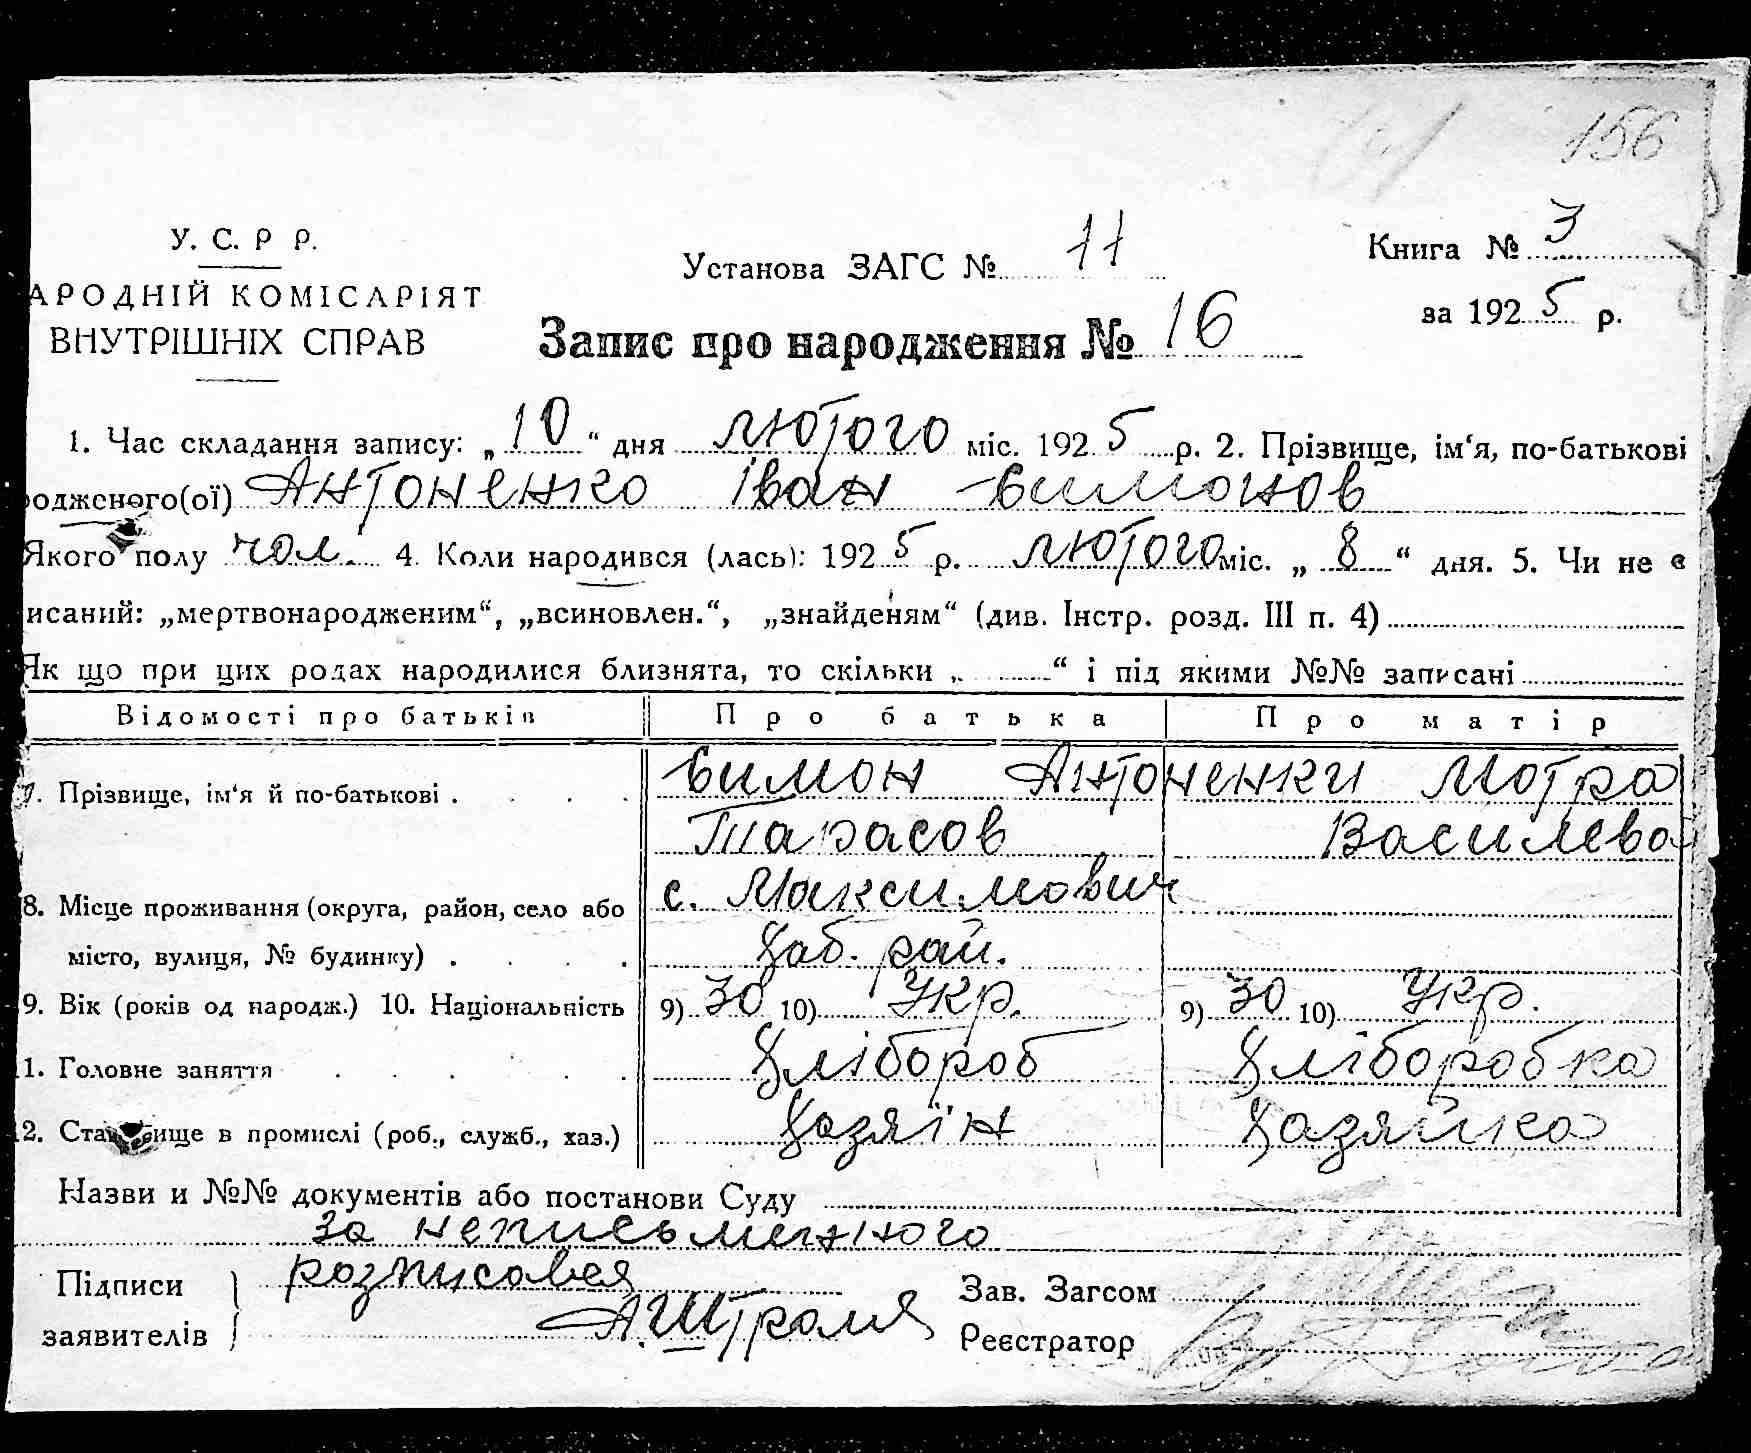 156
У. С. Р Р.
Установа ЗАГС № 11
Книга № 3
АРОДНІЙ КОМІСАРІЯТ
ВНУТРІШНІХ СПРАВ
за 1925 р.
Запис про народження № 16
1. Час складання запису: „10“ дня лютого міс. 1925 р. 2. Прізвище, ім‘я, по-батькові
одженого(ої) Антоненко Іван Симонов
Якого полу чол. 4. Коли народився (лась): 1925 р. лютого міс. „8“ дня. 5. Чи не є
исаний: „мертвонародженим“, „всиновлен.“, „знайденям“ (див. Інстр. розд. III п. 4)
Як що при цих родах народилися близнята, то скільки „ “ і під якими №№ записані
Відомості про батьків Про батька Про матір
7. Прізвище, ім‘я й по-батькові . . . . Симон Антоненки Мотра
Тарасов Василева
8. Місце проживання (округа, район, село або с. Максимович
місто, вулиця, № будинку) . . . . Хаб. рай.
9. Вік (років од народж.) 10. Національність 9) 30 10) Укр. 9) 30 10) Укр.
1. Головне заняття . . . . . Хлібороб Хліборобка
2. Становище в промислі (роб., служб., хаз.) Хазяїн Хазяйка
Назви и №№ документів або постанови Суду
за неписьменного
Підписи розписався Зав. Загсом
заявителів А. Штраля Реєстратор